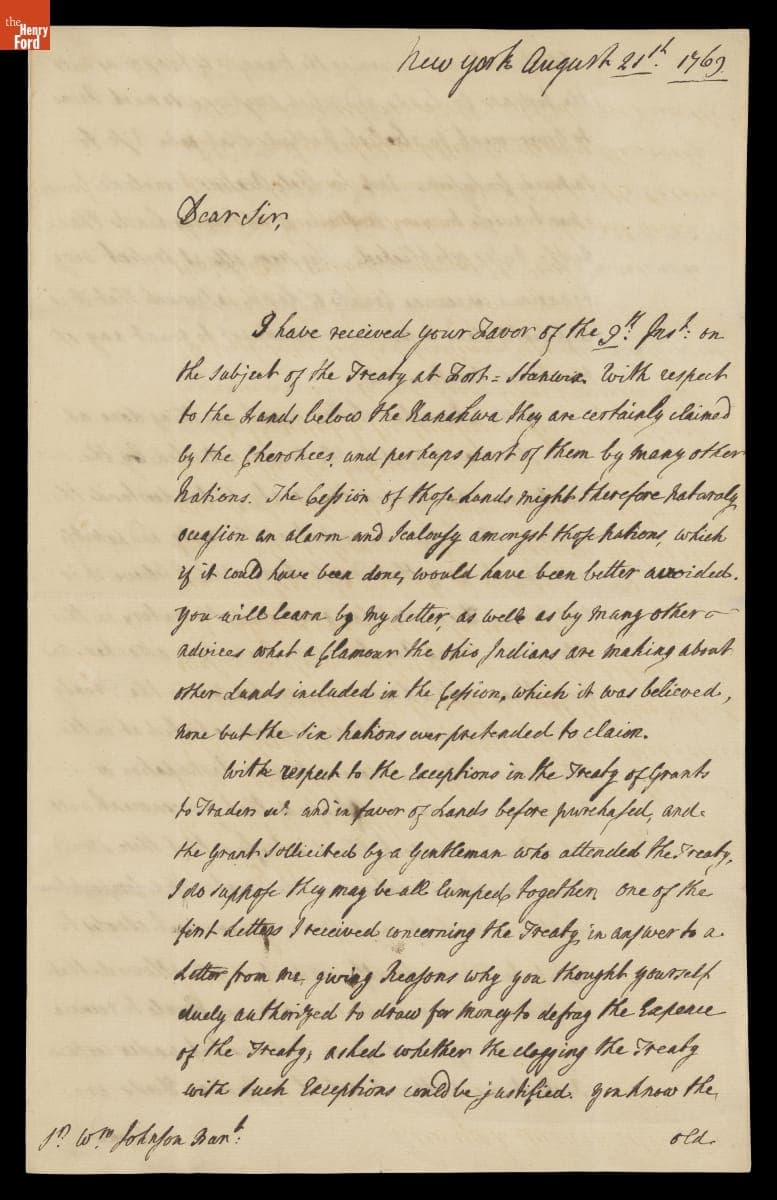 the
Henry
Ford
New York August 21th. 1769.
Dear Sir,
I have received your Favor of the 9th. Inst: on
the subject of the Treaty at Fort=Stanwix. With respect
to the Lands below the Kanahwa they are certainly claimed
by the Cherokees, and perhaps part of them by many other
Nations. The Cession of those Lands might therefore naturaly
occasion an alarm and Jealousy amongst those Nations, which
if it could have been done, would have been better avoided.
You will learn by my Letter, as well as by many other
advices what a Clamour the Ohio Indians are making about
other Lands included in the Cession, which it was believed,
none but the Six Nations ever pretended to claim.
With respect to the Exceptions in the Treaty of Grants
to Traders &c. and in favor of Lands before purchased, and
the Grant sollicited by a Gentleman who attended the Treaty,
I do suppose they may be all lumped together. One of the
first Letters I received concerning the Treaty, in answer to a
Letter from me, giving Reasons why you thought yourself
duely authorized to draw for Money to defray the Expence
of the Treaty, asked whether the clogging the Treaty
with such Exceptions could be justified. You know the
Sr. Wm. Johnson Bart:
old